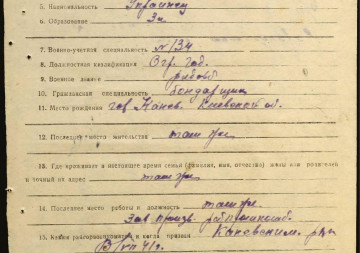 5. Национальность Украинец
6. Образование 3 кл.
7. Военно-учетная специальность №134
8. Должностная квалификация Огр. год.
9. Военное звание рядов
10. Гражданская специальность бондарщик
11. Место рождения гор Канев. Киевской об.
12. Последнее место жительства там же
13. Где проживает в настоящее время семья (фамилия, имя, отчество) жены или родителей
и точный их адрес там же
14. Последнее место работы и должность там же
Зав. произв.
15. Каким райгорвоенкоматом и когда призван Каневским. рвк